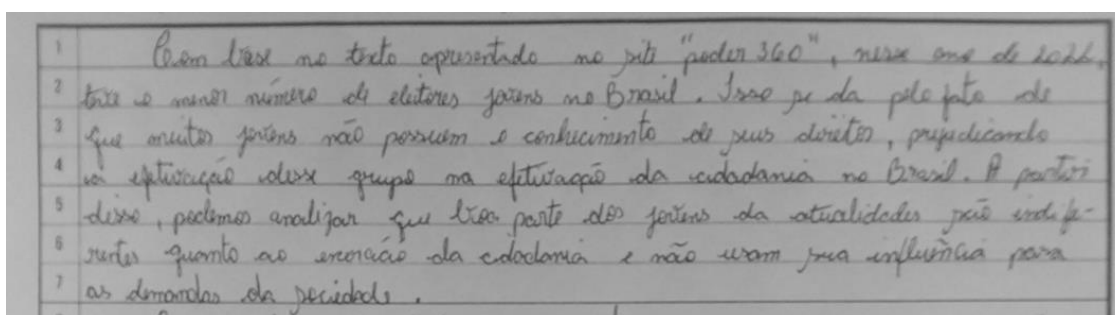 1 Com base no texto apresentado no site "poder 360", nesse ano de 2022,
2 teve o menor número de eleitores jovens no Brasil. Isso se da pelo fato de
3 que muitos jovens não possuem o conhecimento de seus direitos, prejudicando
4 a efetivação desse grupo na efetivação da cidadania no Brasil. A partir
5 disso, podemos analizar que boa parte dos jovens da atualidades são indife-
6 rentes quanto ao exercício da cidadania e não usam sua influência para
7 as demandas da sociedade.